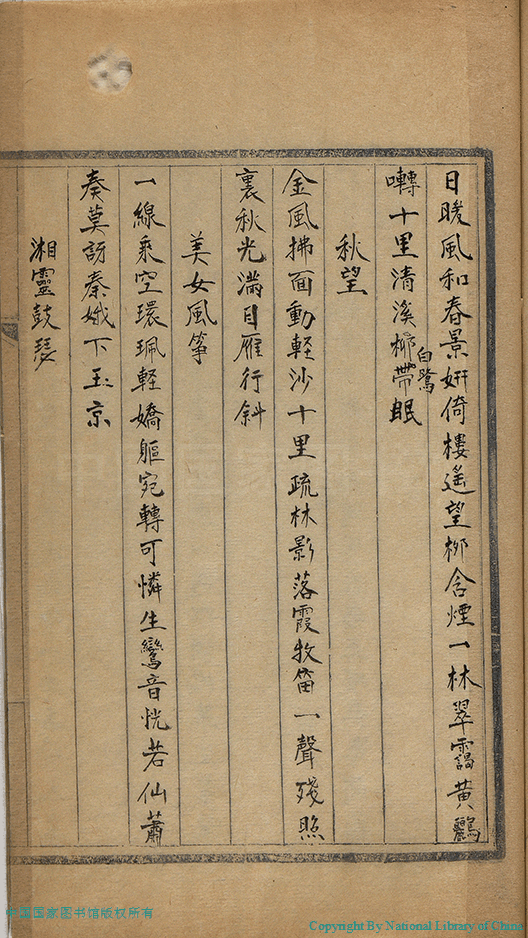 日暖風和春景妍倚樓遙望柳含煙一林翠靄黃鸝
囀十里清溪柳帶眠
白鷺
秋望
金風拂面動輕沙十里疏林影落霞牧笛一聲殘照
裏秋光滿目雁行斜
美女風箏
一線乘空環珮輕嬌軀宛轉可憐生鸞音恍若仙蕭
奏莫訝秦娥下玉京
湘靈鼓瑟
中国国家图书馆版权所有
Copyright By National Library of China